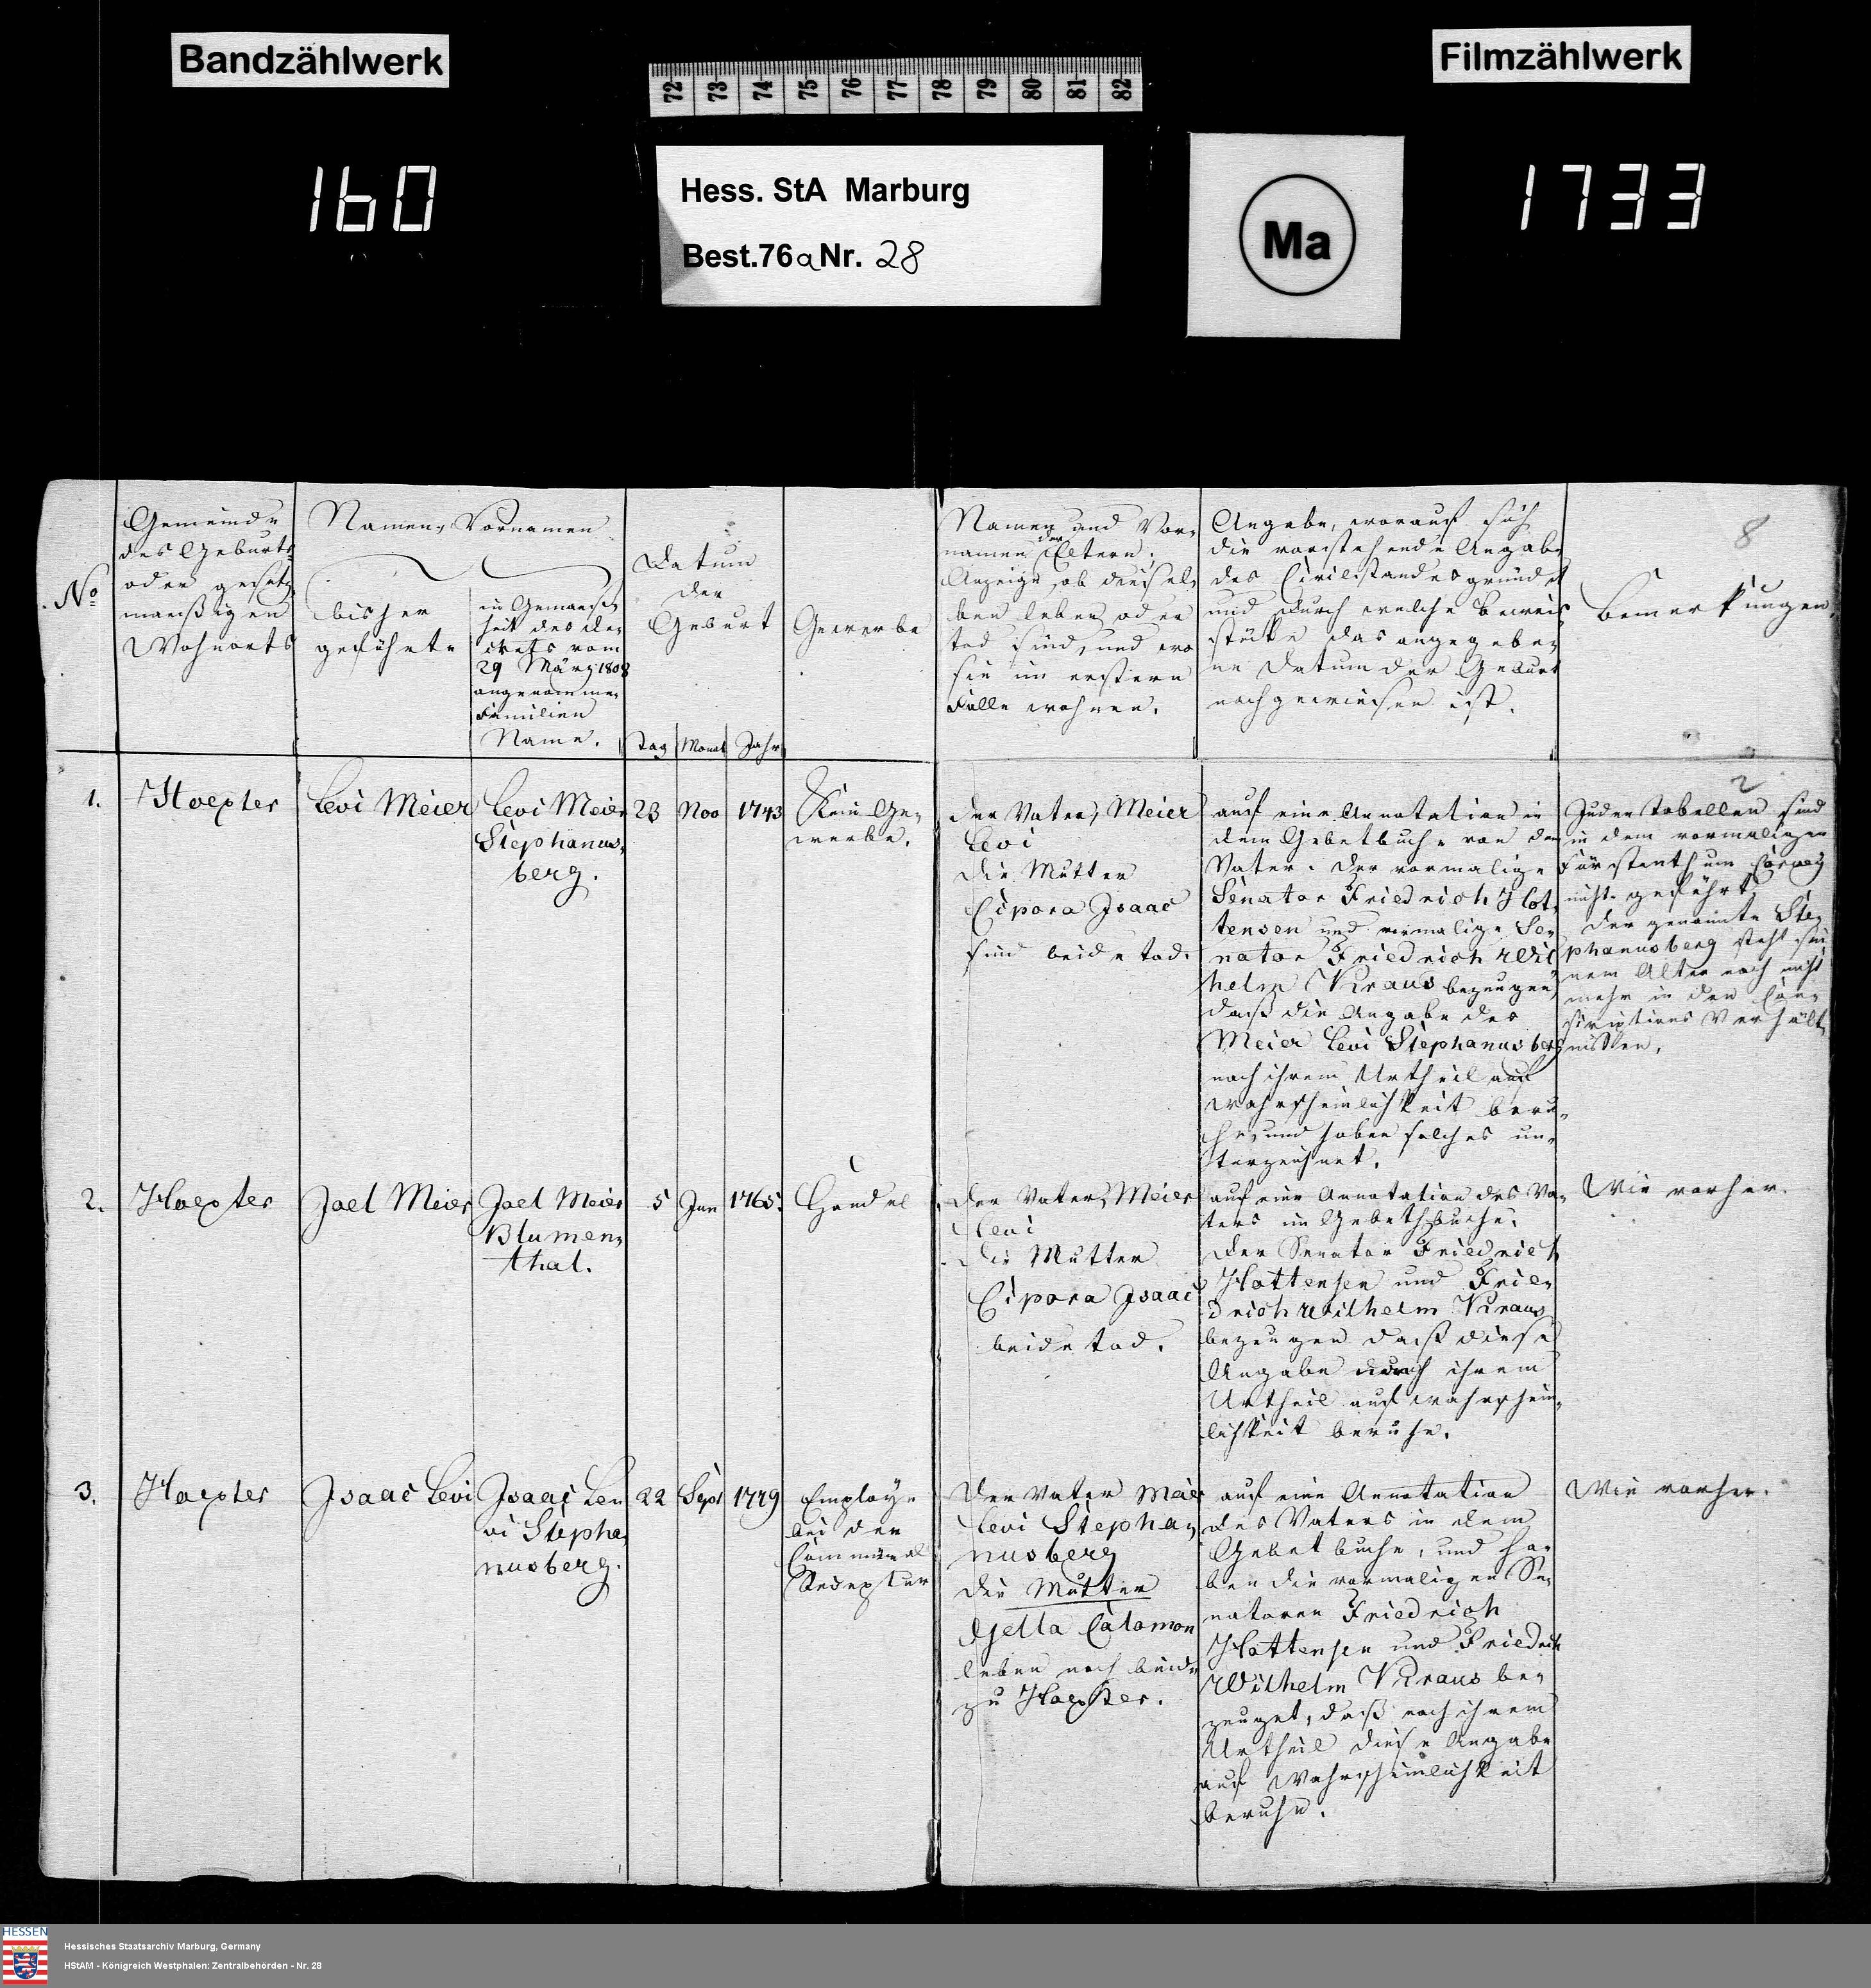 Bandzählwerk
Filmzählwerk
72 73 74 75 76 77 78 79 80 81 82
160
Hess. StA Marburg
Best.76a Nr. 28
Ma
1733
8
No
Gemeinde
des Geburts
oder gesetz
maeßigen
Wohnorts
Namen, Vornamen
bisher
geführte
in Gemaess
heit des de,
crets vom
29 März 1808
angenomme,
Familien
Name.
Datum
der
Geburt
Tag Monat Jahr
Gewerbe
Namen und Vor,
namen der Eltern;
Anzeige, ob diesel,
ben leben oder
tod sind, und wo
sie im erstern
Falle wohnen.
Angabe, worauf sich
die vorstehende Angabe
des Civilstandes gründet
und durch welche Beweis
stücke das angegebe,
ne Datum der Geburt
nachgewiesen ist.
Bemerkungen
1.
Hoexter
Levi Meier
Levi Meier
Stephanus,
berg.
23 Nov 1743
Kein Ge,
werbe.
der Vater, Meier
Levi
die Mutter
Cipora Isaac
sind beide tod.
auf eine Annotation in
dem Gebetbuche von dem
Vater. Der vormalige
Senator Friedrich Hot,
tensen und vormalige Se,
nator Friedrich Wil
helm Kraus bezeugen,
daß die Angabe des
Meier Levi Stephanusberg
nach ihrem Urtheil auf
Wahrscheinlichkeit beru,
he, und haben solches un,
terzeichnet.
2
Juden tabellen sind
in dem vormaligen
Fürstenthum Corvey
nicht geführt.
Der genannte Ste,
phanusberg steht sei
nem Alter nach nicht
mehr in den Con,
scriptions Verhält,
nissen.
2.
Hoexter
Joel Meier
Joel Meier
Blumen,
thal.
5 Jun 1765.
Handel
der Vater, Meier
Levi
die Mutter
Cipora Isaac
beide tod.
auf eine Annotation des Va,
ters im Gebethbuche.
Der Senator Friedrich
Hottensen und Frie,
drich Wilhelm Kraus
bezeugen daß diese
Angabe nach ihrem
Urtheil auf Wahrschein,
lichkeit beruhe.
Wie vorher.
3.
Hoexter
Isaac Levi
Isaac Le,
vi Stepha,
nusberg.
22 Sept 1779
Employe
bei der
Communal
Receptur
Der Vater Meier
Levi Stepha,
nusberg
die Mutter
Gella Calomon
leben noch beide
zu Hoexter.
auf eine Annotation
des Vaters in dem
Gebetbuche, und ha,
ben die vormaligen Se,
natoren Friedrich
Hottensen und Friedrich
Wilhelm Kraus be,
zeuget, daß nach ihrem
Urtheil diese Angabe
auf Wahrscheinlichkeit
beruhe.
Wie vorher.
HESSEN
Hessisches Staatsarchiv Marburg, Germany
HStAM - Königreich Westphalen: Zentralbehörden - Nr. 28